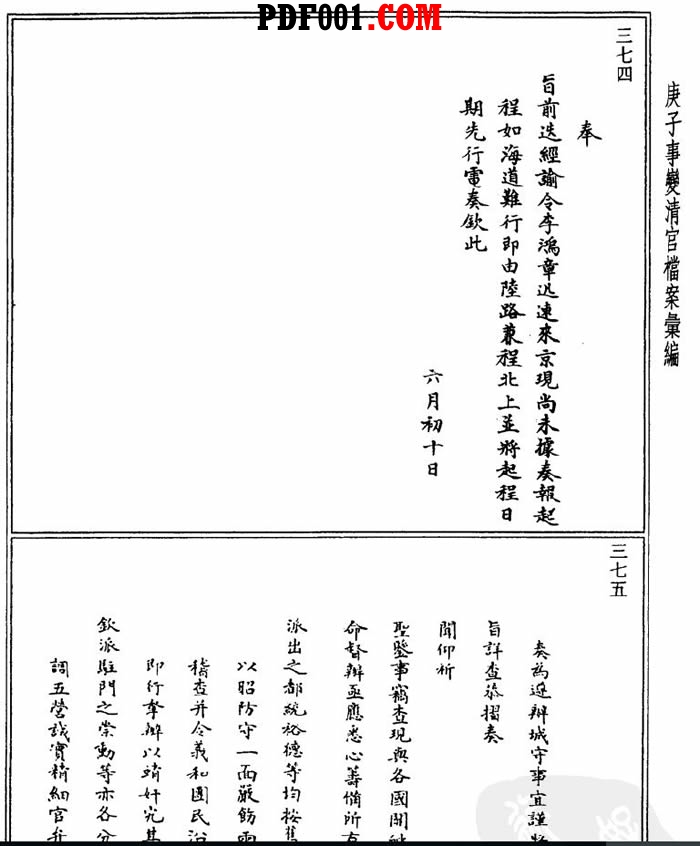 PDF001.COM
庚子事變清宮檔案彙編
三七四
奉
旨前迭經諭令李鴻章迅速來京現尚未據奏報起
程如海道難行即由陸路兼程北上並將起程日
期先行電奏欽此
六月初十日
三七五
奏為遵辦城守事宜謹將
旨詳查恭摺奏
聞仰祈
聖鑒事竊查現與各國開
命督辦亟應悉心籌備所有
派出之都統裕德等均按舊
以昭防守一面嚴飭兩
稽查并令義和團民
即行拏辦以靖奸宄其
欽派駐門之崇勳等亦各分
調五營誠實精細官弁